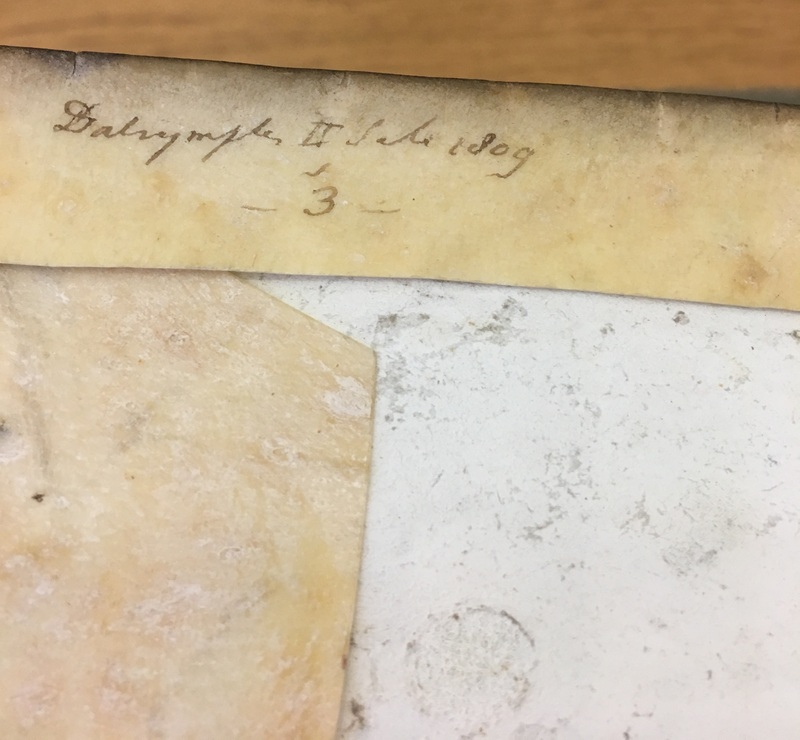 Dalrymples II Sale 1809
3